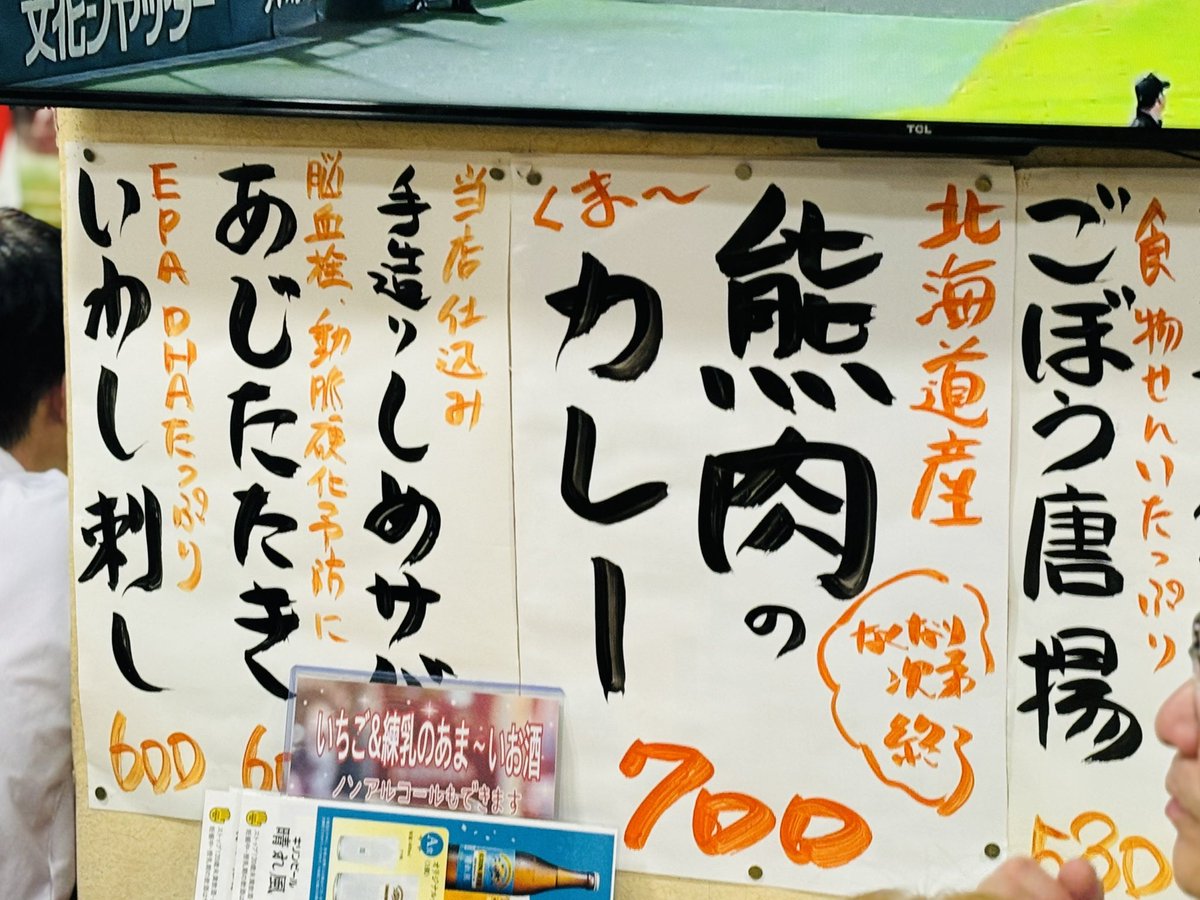 文化シヤッター
TCL
食物せんいたっぷり
ごぼう唐揚
530
北海道産
熊肉の
くま〜
カレー
なくなり
次第
終り
700
当店仕込み
手造りしめサバ
脳血栓、動脈硬化予防に
あじたたき
EPA DHAたっぷり
いわし刺し
600
いちご&練乳のあま〜いお酒
ノンアルコールもできます
キリンビール
晴れ風